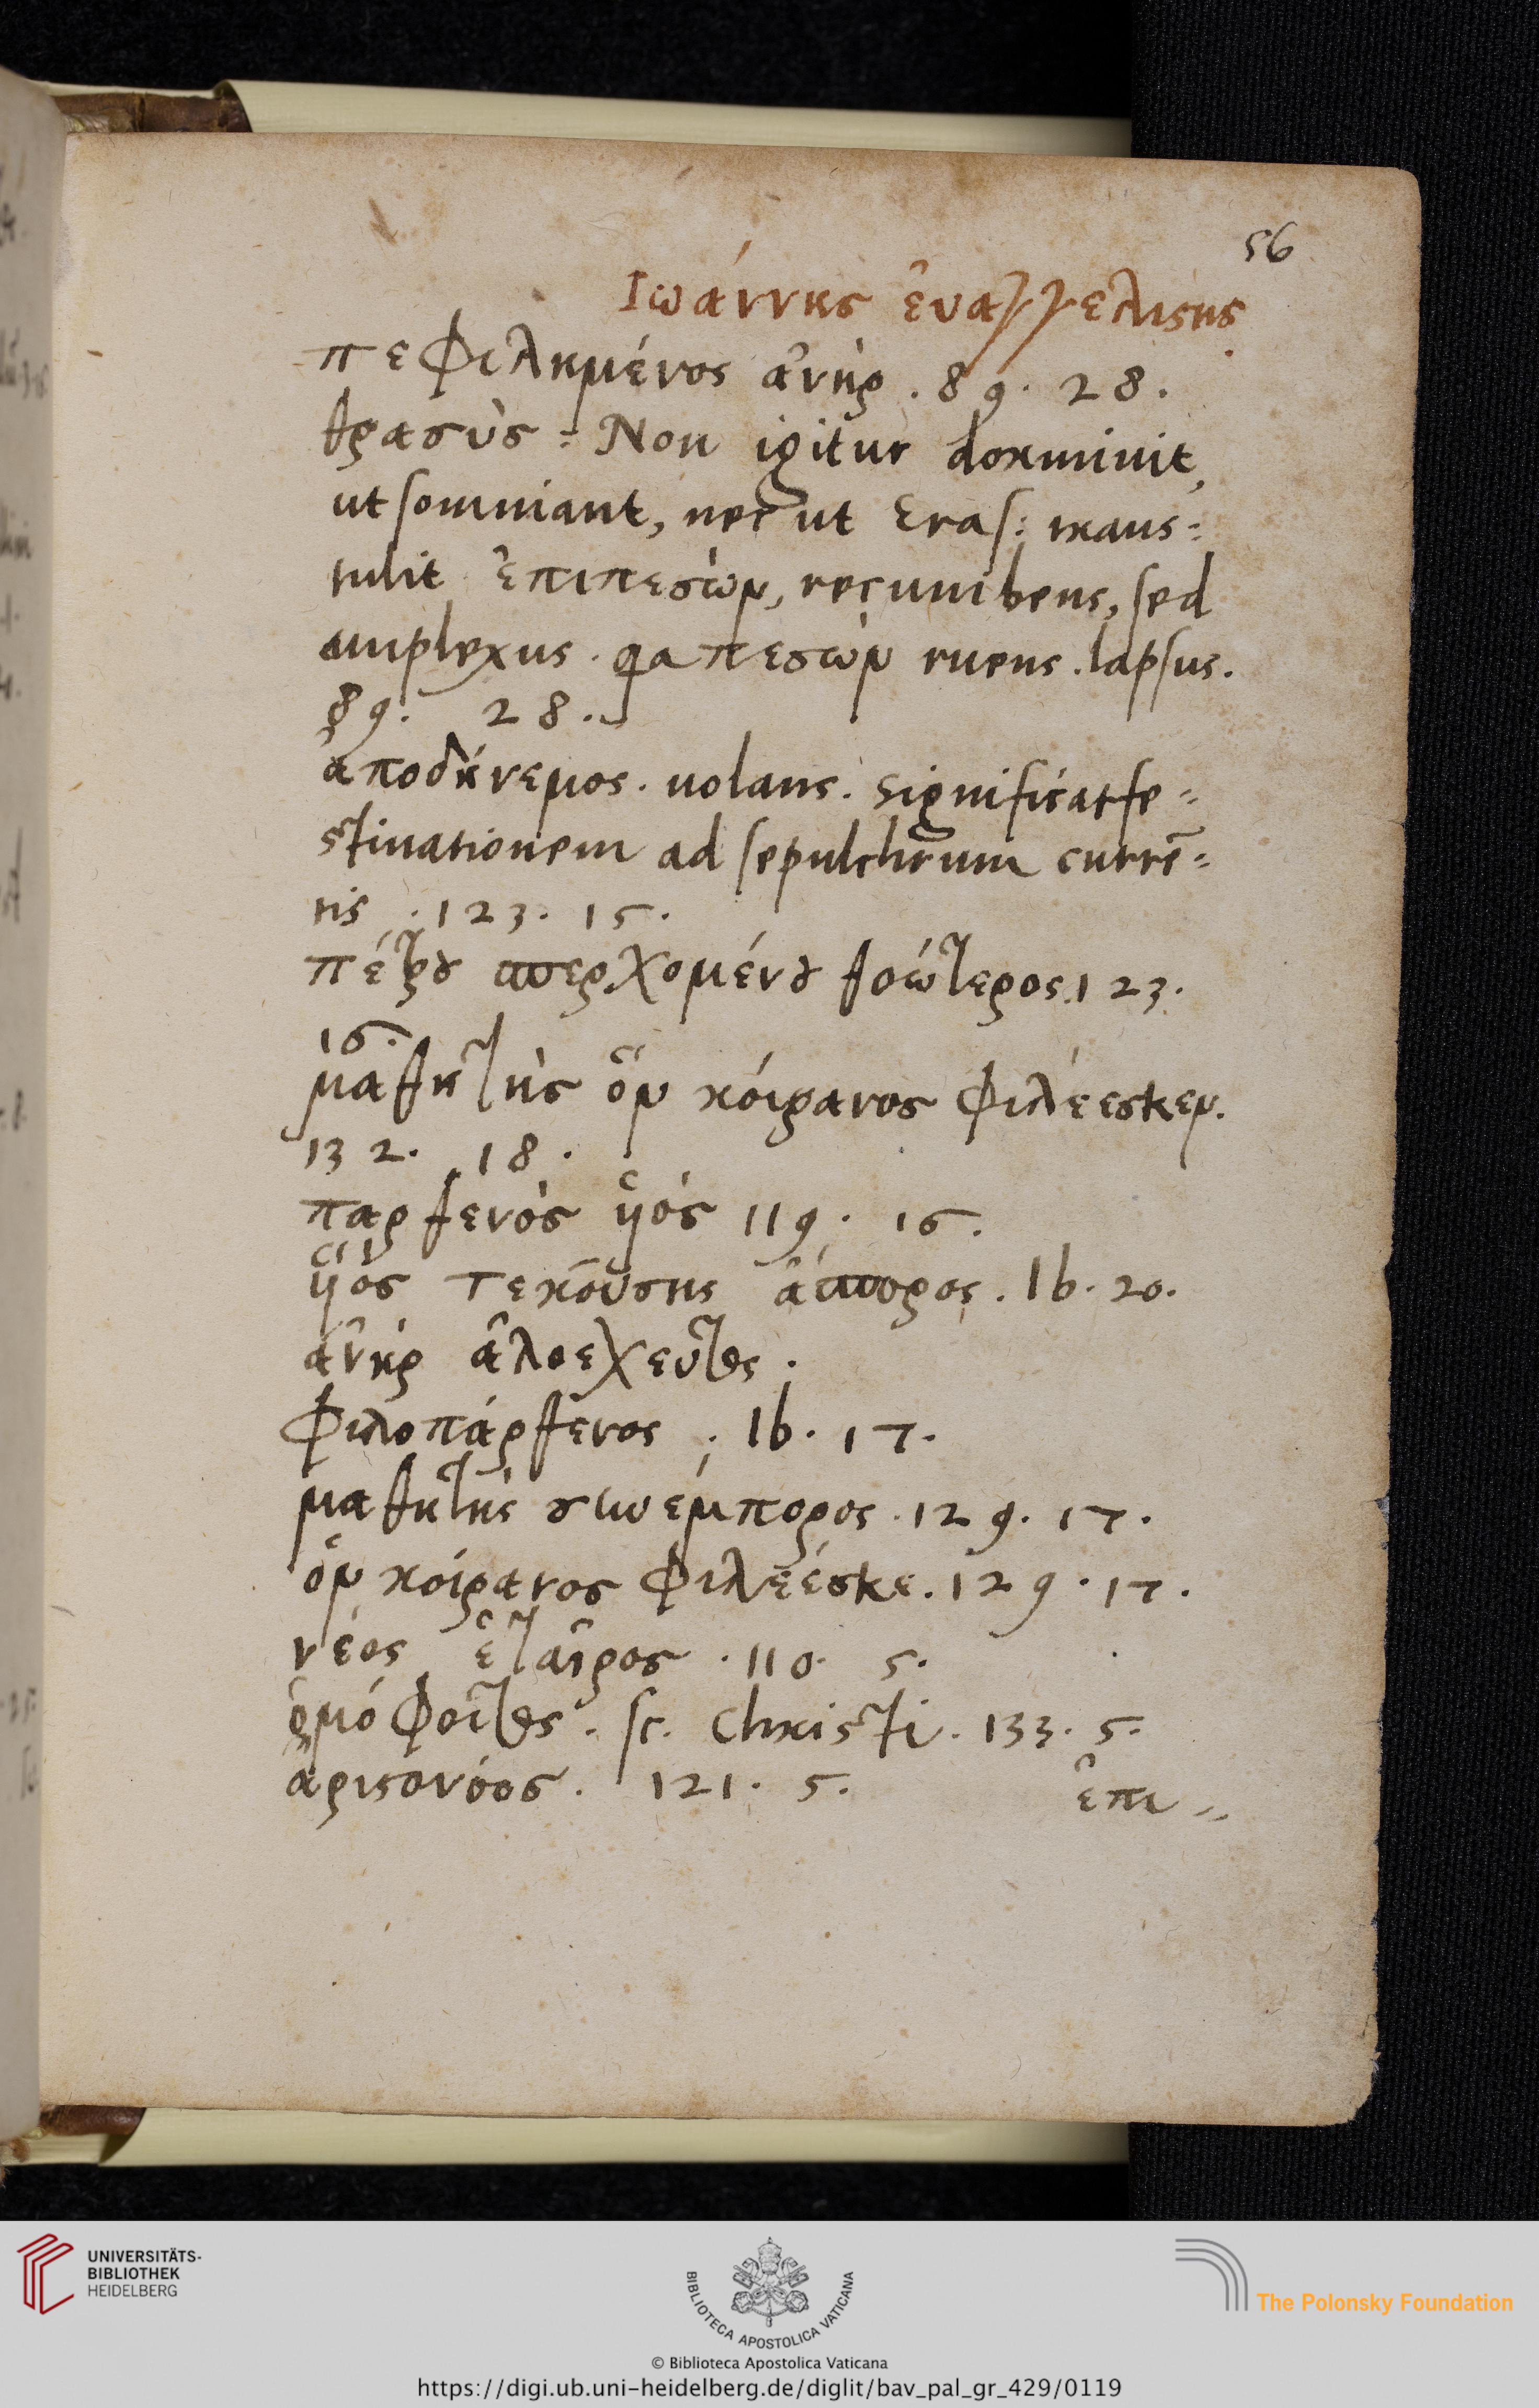 56
Ἰωάννης ἐυαγγελιστής
πεφιλημένος ἀνήρ . 89. 28.
θρασύς = Non igitur dormiuit,
ut somniant, nec ut Eras: trans=
tulit ἐπιπεσών, recumbens, sed
amplexus . πεσών ruens . lapsus.
89. 28.
ἀποδήνεμος . uolans . significat fe=
stinationem ad sepulchrum currē=
tis . 123. 15.
πέτρου συνερχομένου θοώτερος . 123.
16.
μαθητής ὅν κοίρανος φιλέεσκεν.
132. 18.
παρθενός ὑιός 119. 16.
ὑιός τεκούσης ἄσπορος . Ib. 20.
ἀνήρ ἀλοεχευτος .
φιλοπάρθενος . Ib. 17.
μαθητής συνέμπορος . 129. 17.
ὅν κοίρανος φιλεέσκε . 129. 17.
νέος ἑταῖρος . 110. 5.
ὁμόφοιτος . sc. Christi . 133. 5.
ἀριστονόος . 121. 5.
ἐπι
UNIVERSITÄTS-
BIBLIOTHEK
HEIDELBERG
BIBLIOTECA APOSTOLICA VATICANA
The Polonsky Foundation
© Biblioteca Apostolica Vaticana
https://digi.ub.uni-heidelberg.de/diglit/bav_pal_gr_429/0119